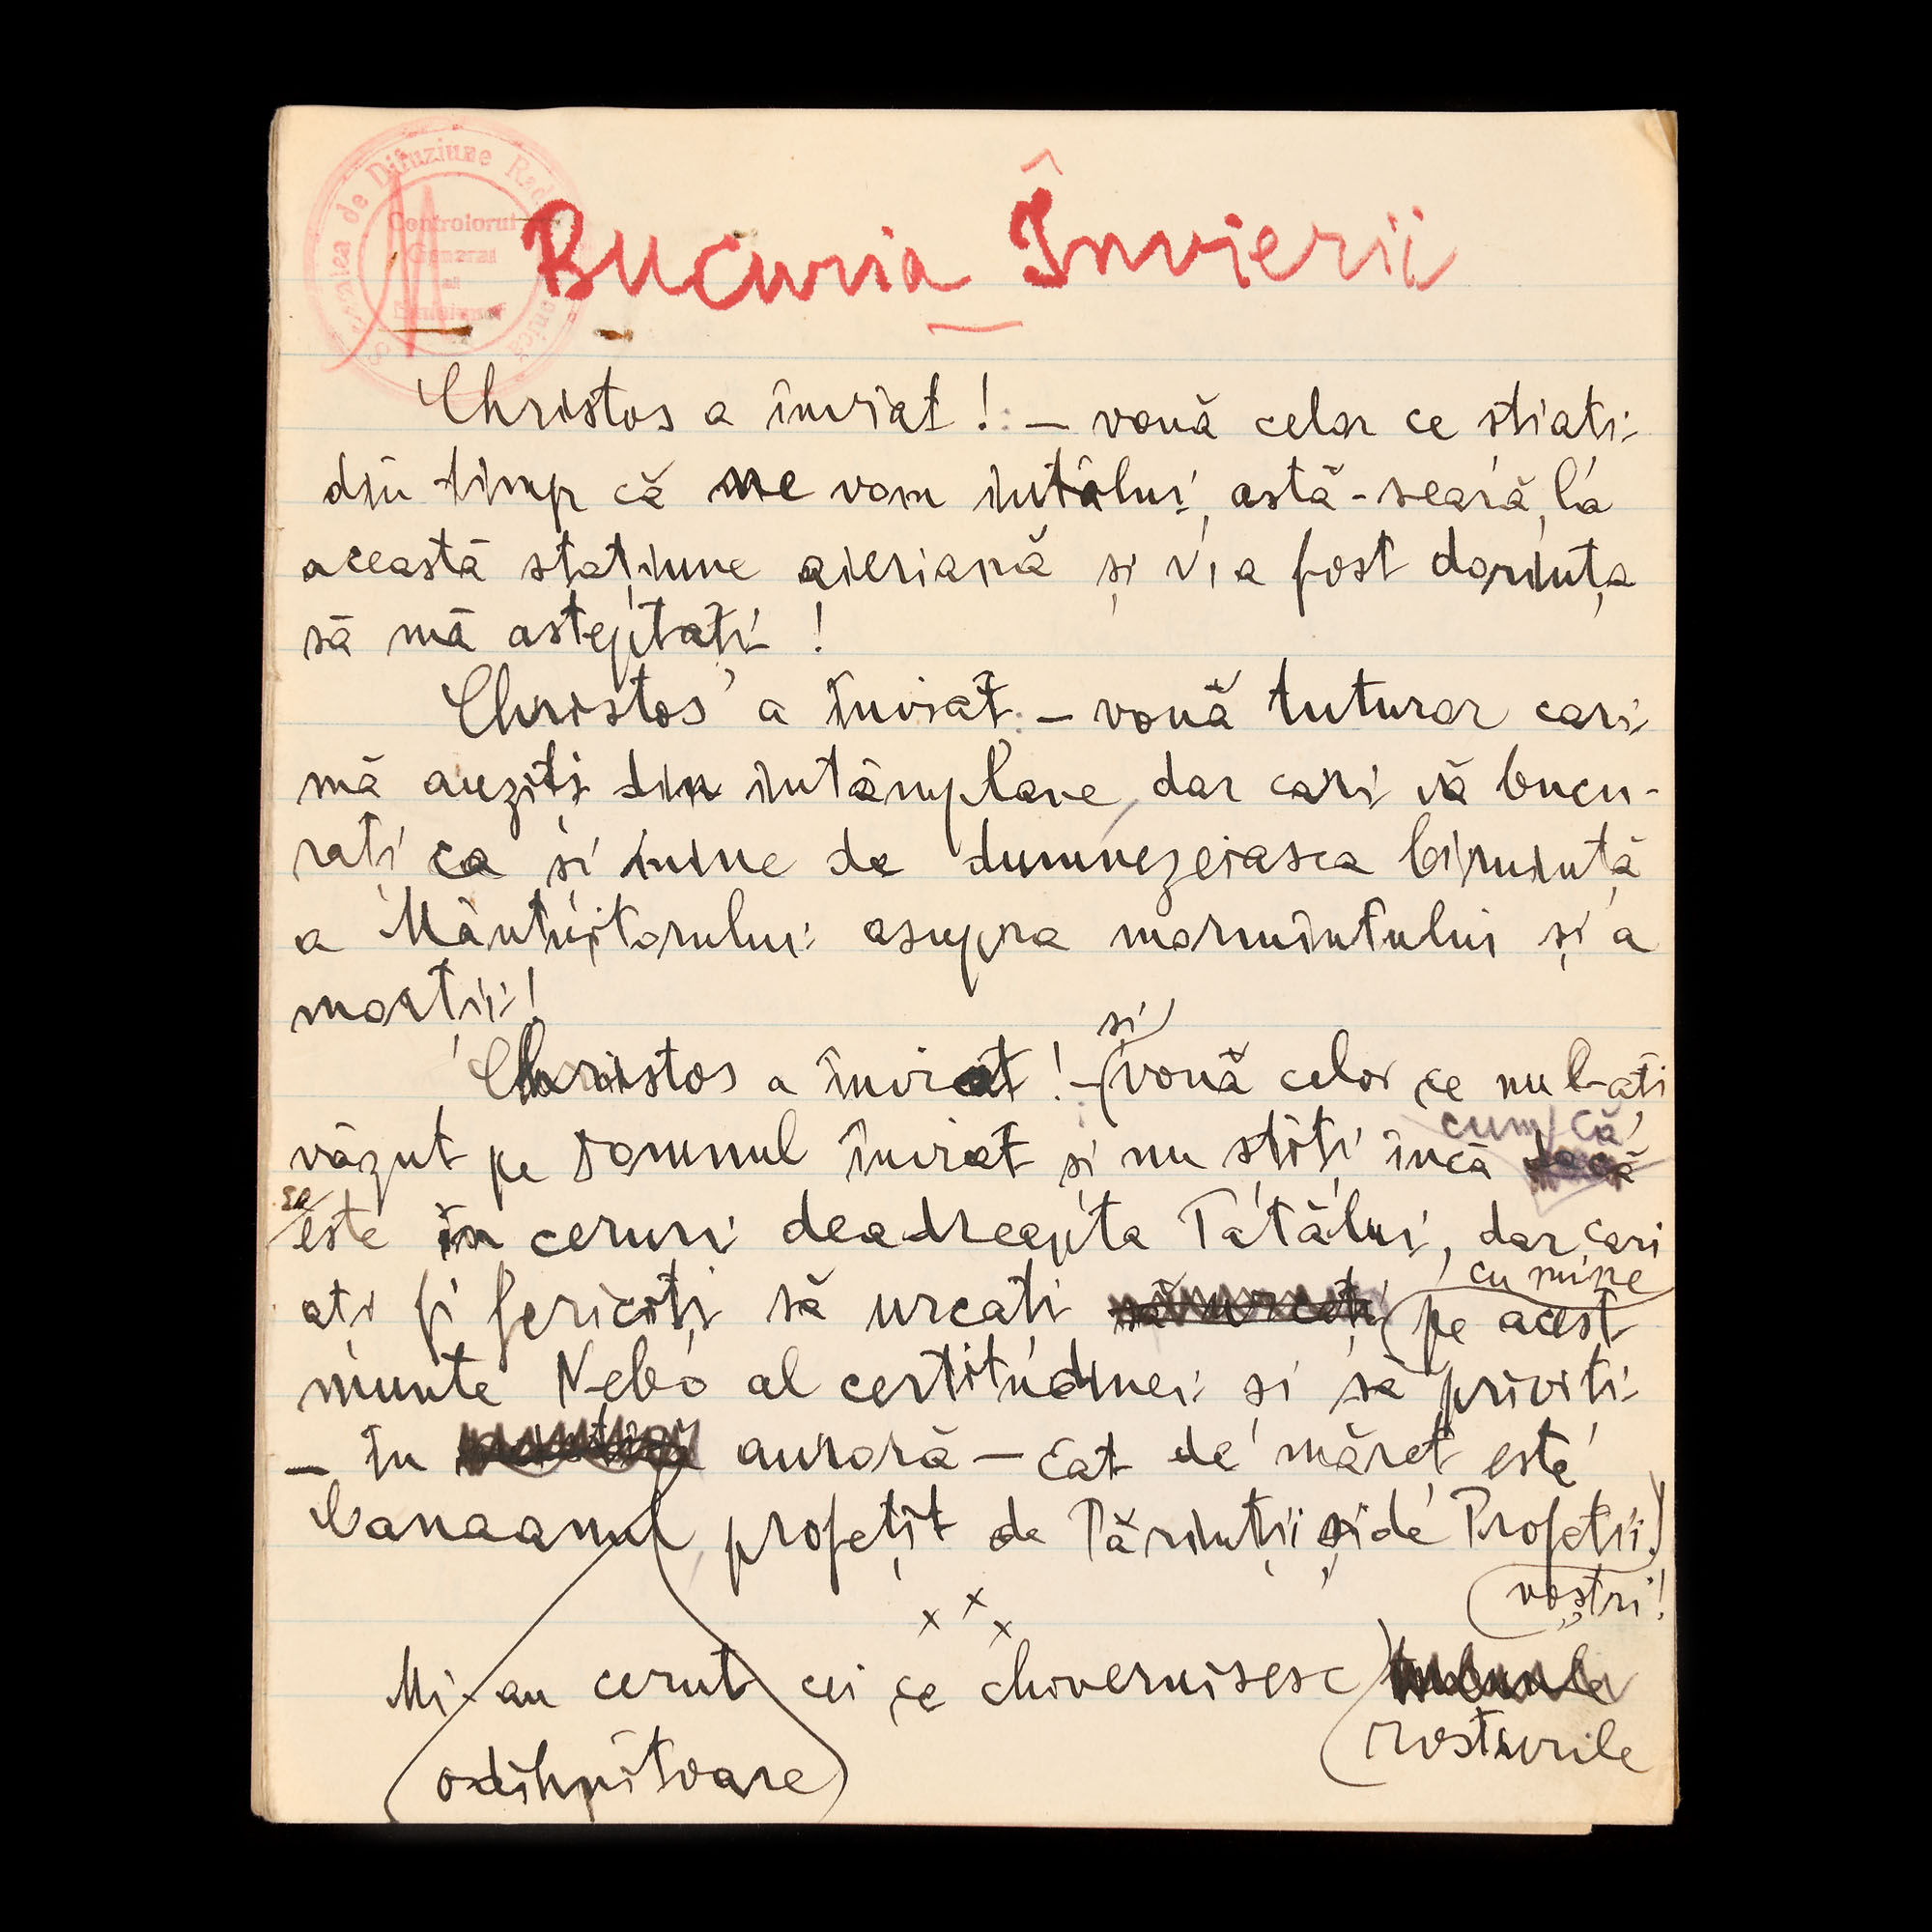 Societatea de Difuziune Radiofonică
Controlorul
General
al
Bucuria Învierii
Christos a înviat! – vouă celor ce știați
din timp că ne vom întâlni, astă-seară, la
această stațiune aieriană și v'a fost dorința
să mă așteptați!
Christos a înviat – vouă tuturor cari
mă auziți din întâmplare, dar cari vă bucu-
rați ca și mine de dumnezeiasca biruință
a Mântuitorului asupra mormîntului și a
morții!
și
Christos a înviat! – vouă celor ce nu l-ați
cum că
văzut pe Domnul înviat și nu știți încă dacă
șa
este în ceruri deadreapta Tatălui, dar cari
cu mine
ați fi fericiți să urcați să urcați pe acest
munte Nebo al certitudinei și să priviți
– în aurora – cat de măreț este
Canaanul, profețit de Părinții și de Profeții
voștri!
x x x
Mi-au cerut cei ce chivernisesc
rosturile
odihnitoare